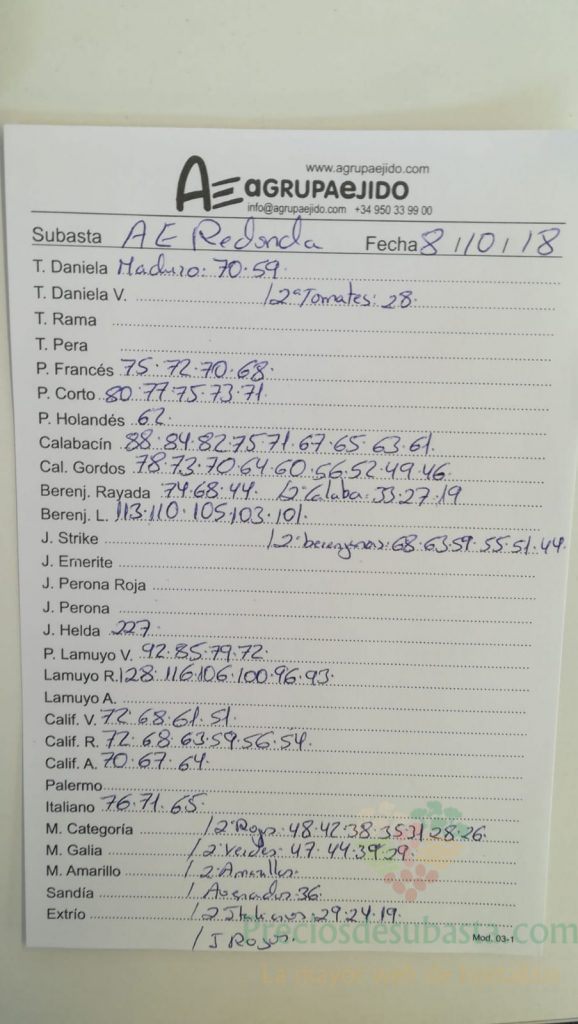 www.agrupaejido.com
AE AGRUPAEJIDO
info@agrupaejido.com +34 950 33 99 00
Subasta AE Redonda Fecha 8/10/18
T. Daniela Maduro: 70.59
T. Daniela V. /2ª Tomates: 28
T. Rama
T. Pera
P. Francés 75.72.70.68
P. Corto 80.77.75.73.71
P. Holandés 62
Calabacín 88.84.82.75.71.67.65.63.61
Cal. Gordos 78.73.70.64.60.56.52.49.46
Berenj. Rayada 74.68.44 /2ª Claba: 33.27.19
Berenj. L. 113.110.105.103.101
J. Strike /2ª berenjenas: 68.63.59.55.51.44
J. Emerite
J. Perona Roja
J. Perona
J. Helda 227
P. Lamuyo V. 92.85.79.72
Lamuyo R. 128.116.106.100.96.93
Lamuyo A.
Calif. V. 72.68.61.51
Calif. R. 72.68.63.59.56.54
Calif. A. 70.67.64
Palermo
Italiano 76.71.65
M. Categoría /2ª Rojos: 48.42.38.35.31.28.26
M. Galia /2ª Verdes: 47.44.39.29
M. Amarillo /2 Amarillos
Sandía / Asurcados 36
Extrío /2 Italianos: 29.24.19
/I Rojos
Mod. 03-1
Preciosdesubasta.com
La mayor web de